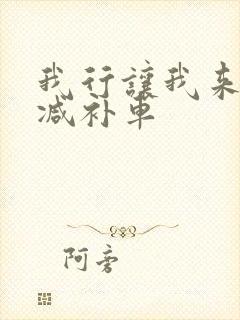 我行讓我来
减补車
阿旁